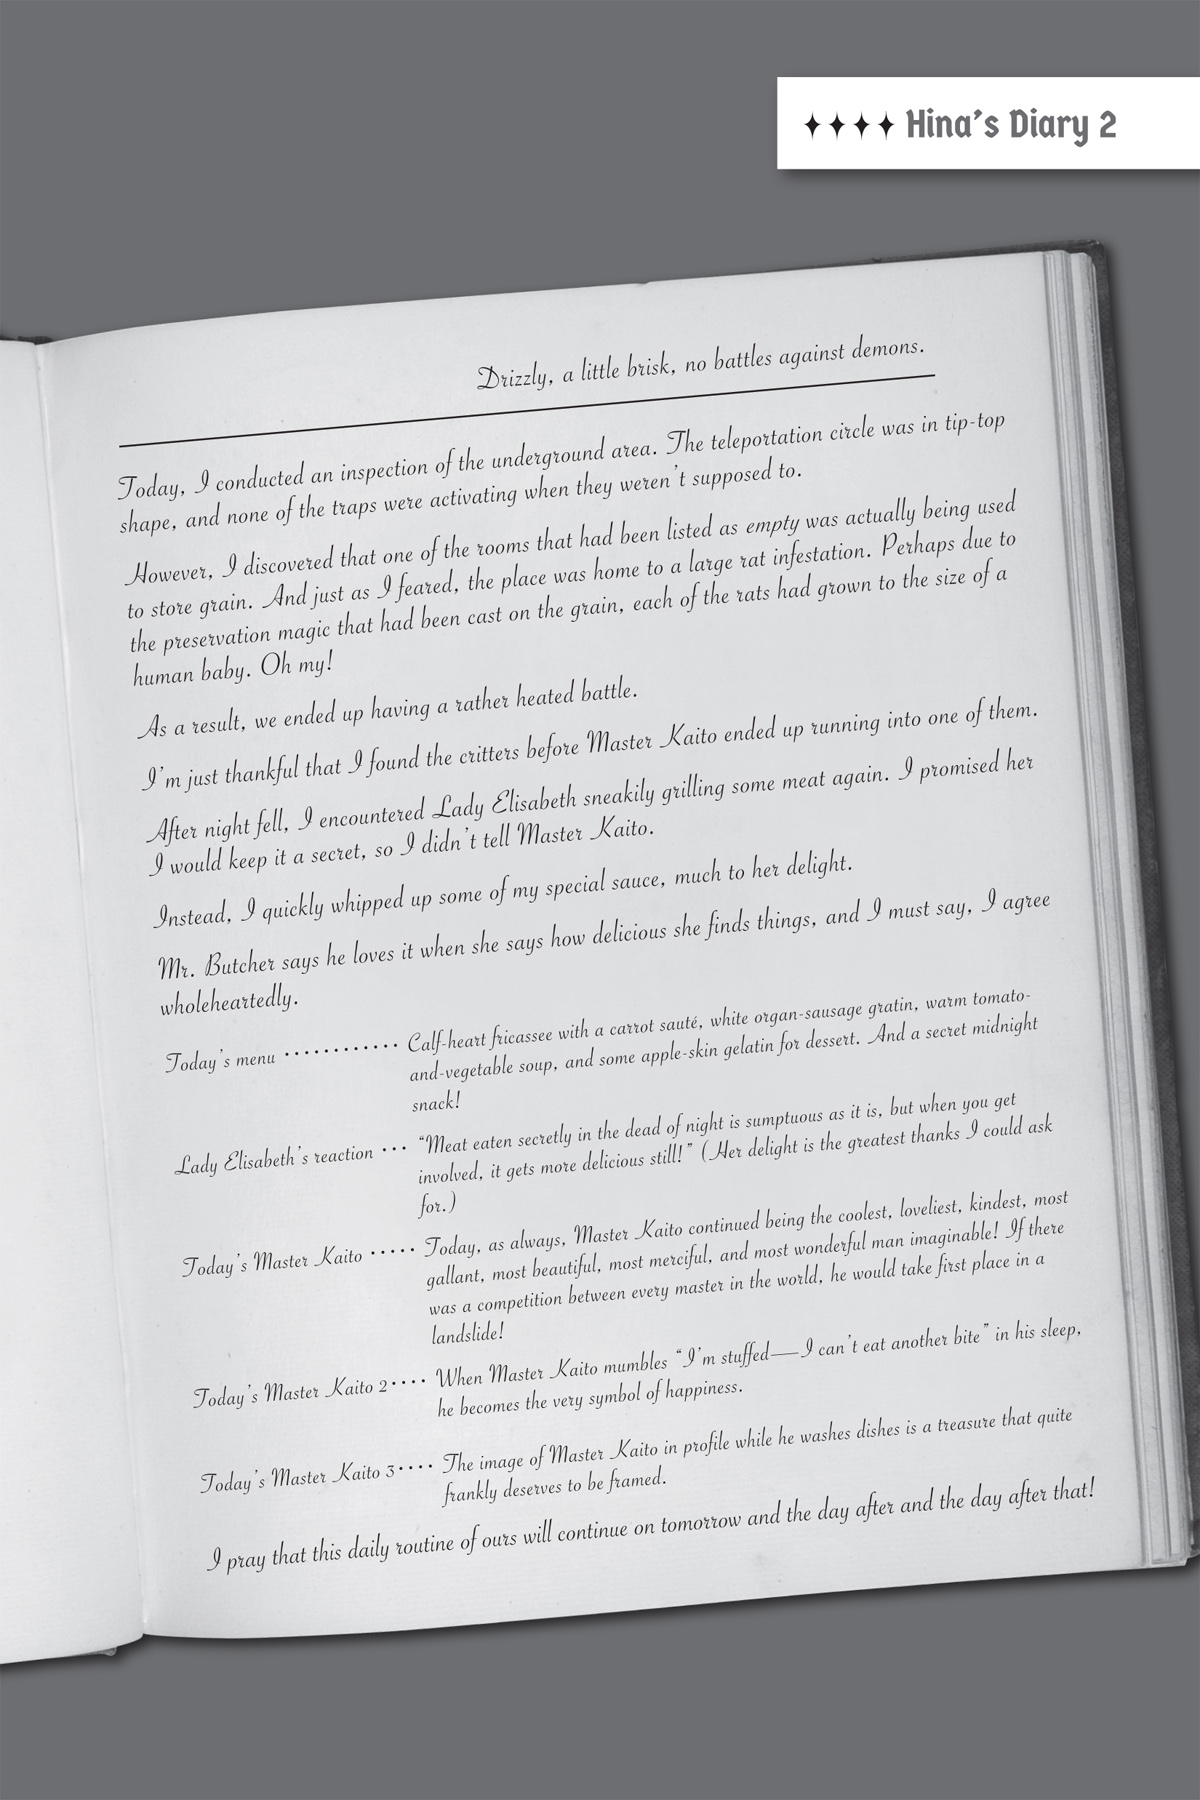 ✦✦✦✦ Hina's Diary 2
Drizzly, a little brisk, no battles against demons.
Today, I conducted an inspection of the underground area. The teleportation circle was in tip-top
shape, and none of the traps were activating when they weren't supposed to.
However, I discovered that one of the rooms that had been listed as empty was actually being used
to store grain. And just as I feared, the place was home to a large rat infestation. Perhaps due to
the preservation magic that had been cast on the grain, each of the rats had grown to the size of a
human baby. Oh my!
As a result, we ended up having a rather heated battle.
I'm just thankful that I found the critters before Master Kaito ended up running into one of them.
After night fell, I encountered Lady Elisabeth sneakily grilling some meat again. I promised her
I would keep it a secret, so I didn't tell Master Kaito.
Instead, I quickly whipped up some of my special sauce, much to her delight.
Mr. Butcher says he loves it when she says how delicious she finds things, and I must say, I agree
wholeheartedly.
Today's menu ············ Calf-heart fricassee with a carrot sauté, white organ-sausage gratin, warm tomato-
and-vegetable soup, and some apple-skin gelatin for dessert. And a secret midnight
snack!
Lady Elisabeth's reaction ··· "Meat eaten secretly in the dead of night is sumptuous as it is, but when you get
involved, it gets more delicious still!" (Her delight is the greatest thanks I could ask
for.)
Today's Master Kaito ····· Today, as always, Master Kaito continued being the coolest, loveliest, kindest, most
gallant, most beautiful, most merciful, and most wonderful man imaginable! If there
was a competition between every master in the world, he would take first place in a
landslide!
Today's Master Kaito 2···· When Master Kaito mumbles "I'm stuffed—I can't eat another bite" in his sleep,
he becomes the very symbol of happiness.
Today's Master Kaito 3···· The image of Master Kaito in profile while he washes dishes is a treasure that quite
frankly deserves to be framed.
I pray that this daily routine of ours will continue on tomorrow and the day after and the day after that!